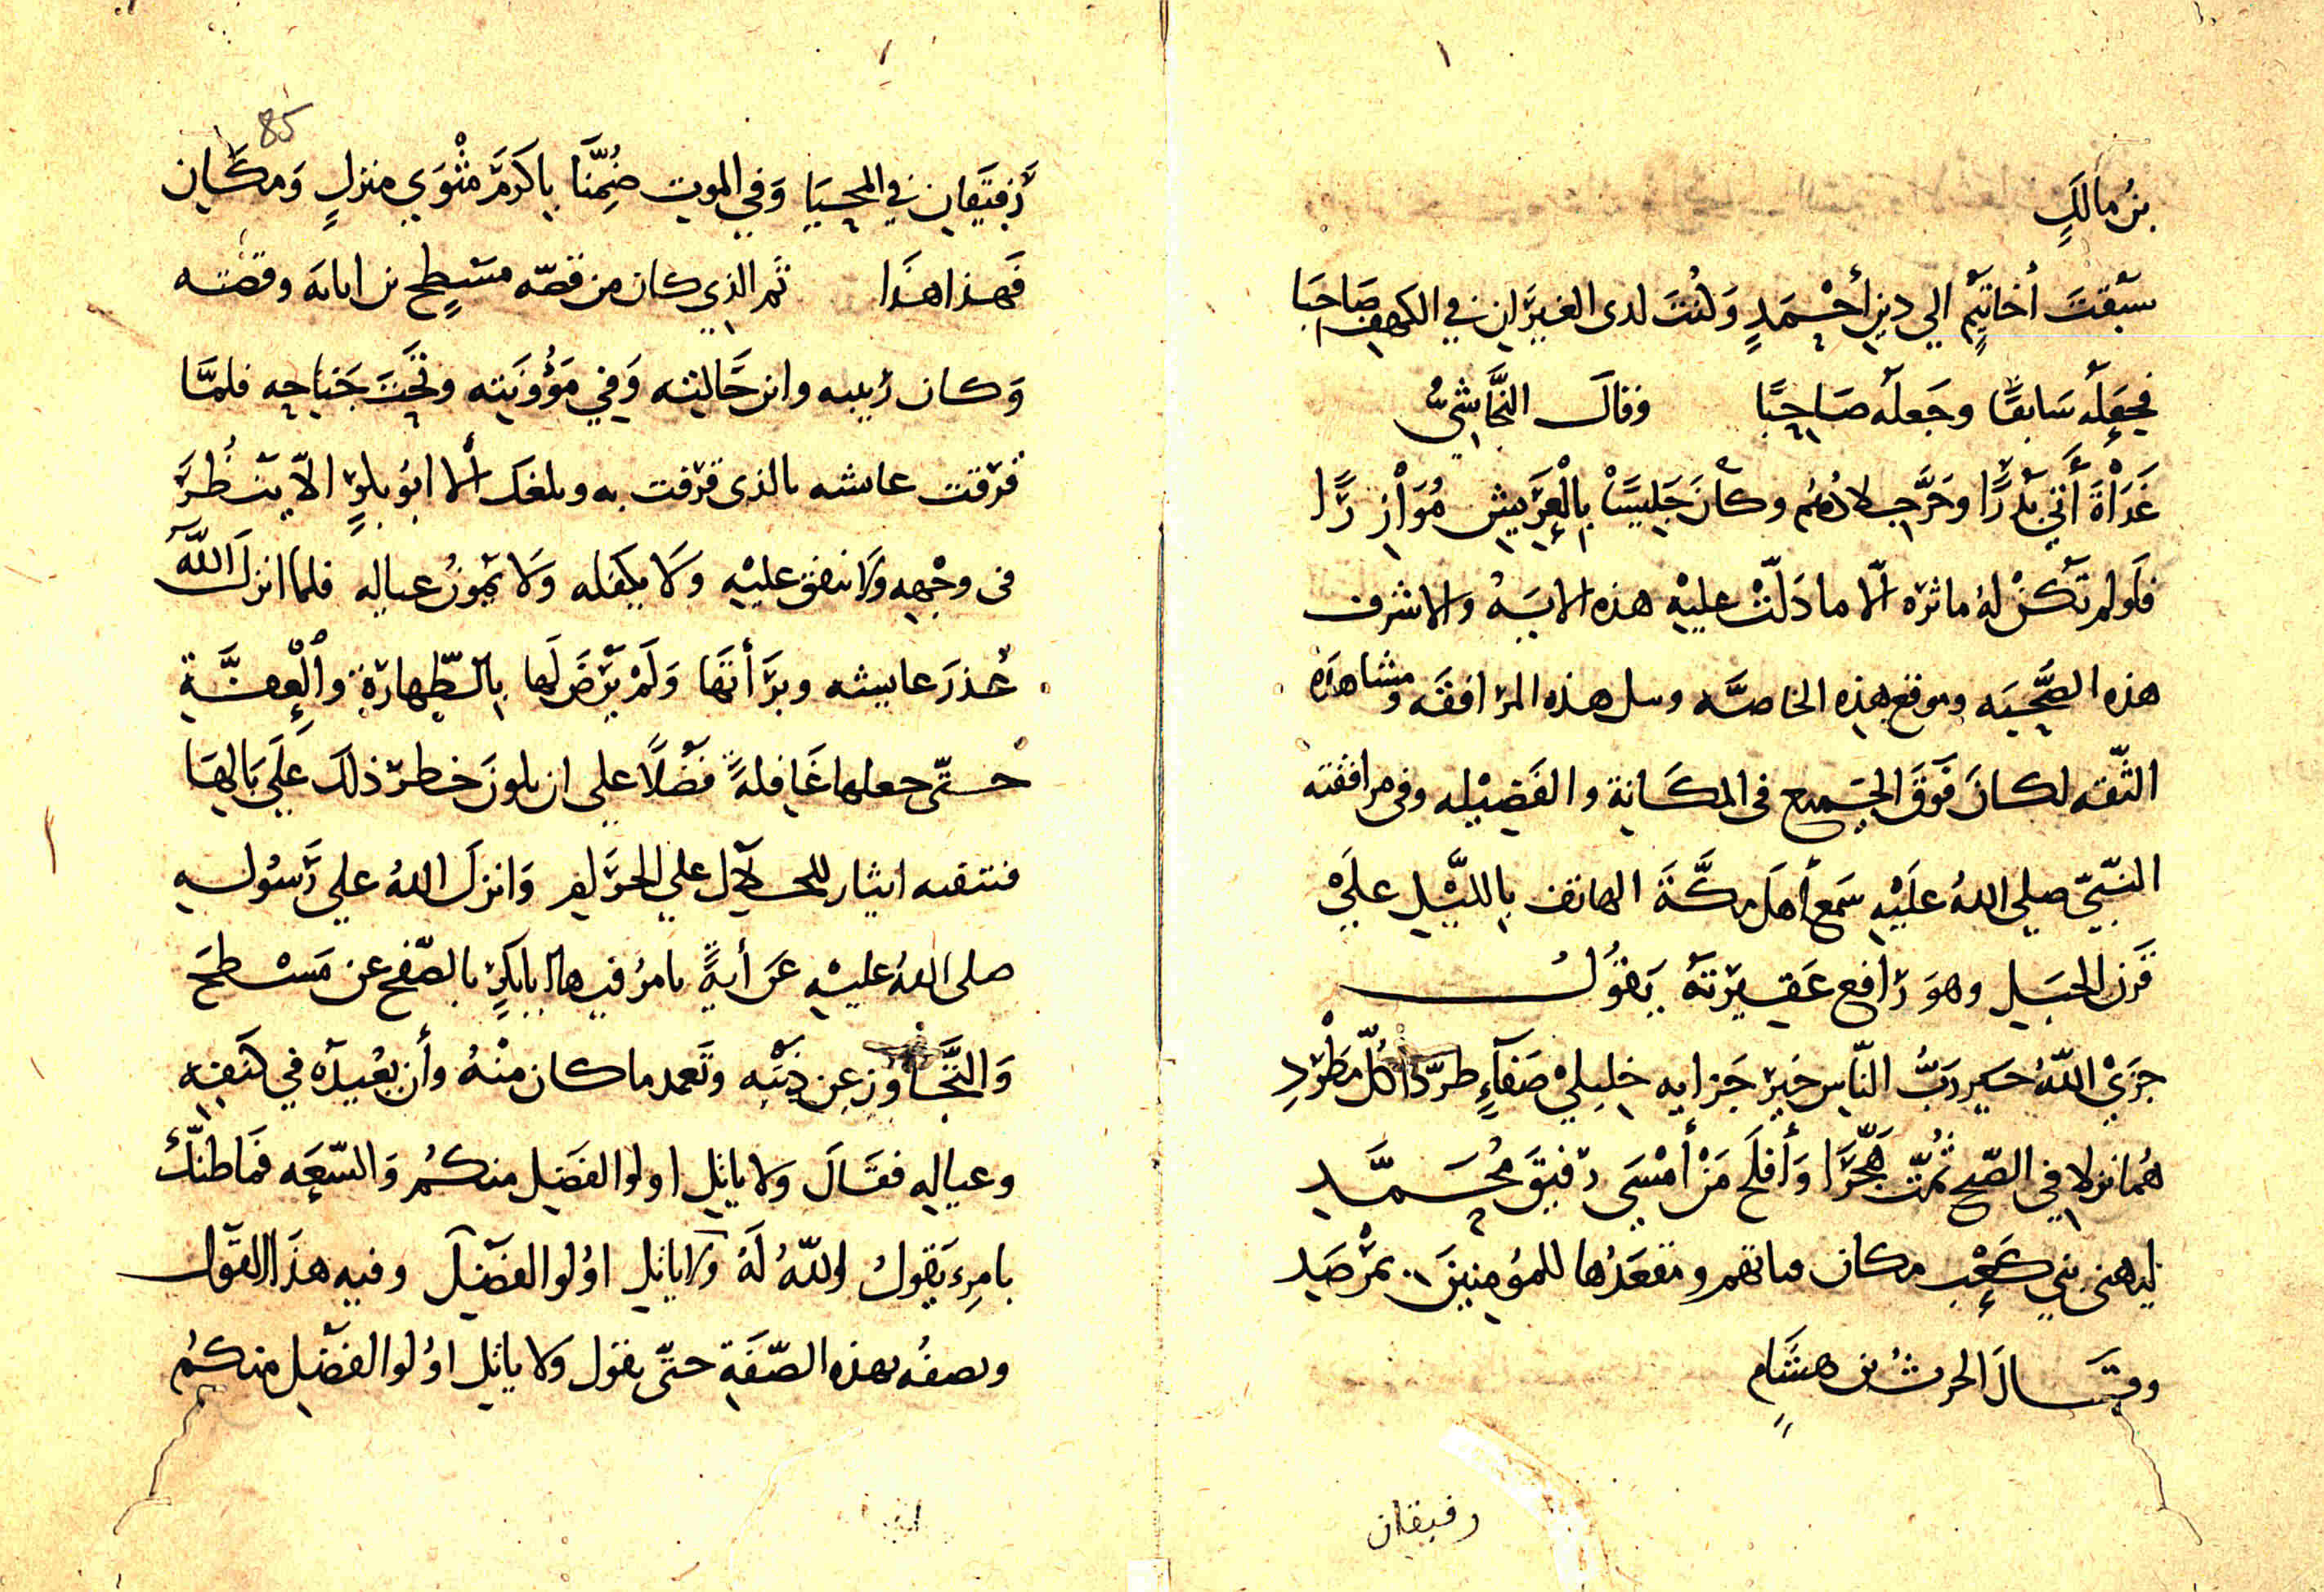 بن مالكٍ
سَبَقتَ أخاتَيمٍ الي دينِ أحْمَدٍ وَكنتَ لدى الغيرَانِ في الكهفِ صَاحِبَا
فجعله سَابقًا وجَعله صَاحِبًا وقالَ النَّجَاشِيُّ
غَدَاةَ أتَي بَدْرًا وخَرَّج لادُهم وكَانَ جَليسًا بِالْعَرِيشِ مُوَازِرًا
فَلَو لم تكنْ لهُ ماثره الّا ما دَلّتْ عليْهِ هذه الايَهُ والاشرف
هذه الصُّحْبَه وموقع هذِه الخاصَّه ومثل هذه المرَافقَه ومشاهدَه
الثّقه لكانَ فَوقَ الجَميع في المكَانةِ والفَضِيْله وفي مرافقته
النَّبيّ صلي اللهُ علَيْهِ سَمعَ أهلَ مكَّةَ الهاتف بِالليْلِ علَيْ
قَرن الجَبَلِ وهوَ رَافع عَقيرتَهُ يَقوُلُ
جزَيْ اللّهُ خير رَبُّ النّاسِ خيرَ جَزايه خليليْ صَفَاءٍ طرّدَا كُلّ مَطْرَدِ
هُما نزلا في الصّحِ ثمّت هَجّرَا وَأفلَحَ مَنْ أمْسَى رَفيقَ مُحَمَّدِ
ليهني بَني كَعْبٍ مكان فتاتهم ومَقعَدُها للمؤمِنينَ بمَرْصَدِ
وقَالَ الحرثُ بن هشَامٍ
رفيقان
85
رَفيقَانِ في المحيَا وَفي الموتِ ضُمِّنَا بِاكرَمِ مَثْوَي منزلٍ وَمكَانِ
فَهذا هذَا ثم الذِي كان من قصّه مسْطِحٍ بن اثاثه وقصّته
وَكان رَبيبه وابن خَالته وَفي مَؤُونَته وتَحْتَ جَنَاحِه فلمَّا
قرفت عايشه بالذي قرفت به وبلغك ألا ابُو بكرٍ الاّ ينْظُرَ
في وجْهِه ولَا ينفق عليْهِ وَلَا يكفله وَلَا يَمُونُ عياله فلما انزلَ اللَّهُ
عُذرَ عايشه وبرَأتَهَا وَلَمْ يَرْضَ لَها بِالطّهارَةِ والْعِفَّةِ
حتّى جعلها غَافلةً فَضْلًا على ان يكونَ خطرَ ذلكَ علَي بَالِهَا
فتنفيه ايثار للحَلَالِ علي الحرَامِ وَانزلَ اللهُ علي رَسُولهِ
صلى اللهُ عليْهِ عَن أيةً يامرُ فيها ابابكرٍ بالصّفح عن مَسْطحَ
وَالتَّجَاوز عن ذَنْبِه وتَعمد ما كان منْهُ وأن يعُيدَهُ في كنَفِهِ
وعياله فقَالَ وَلا ياتلِ اولوا الفَضلِ منكُم وَالسّعَه فَما ظنّكَ
بامرِء يَقولُ اللّهُ لَهُ ولَا ياتلِ اوُلوا الفَضْلَ وفيه هذَا القَول
وبصفُه بهذه الصّفَةِ حتّى يقول ولا ياتل اوُلوا الفَضْلِ منكُم